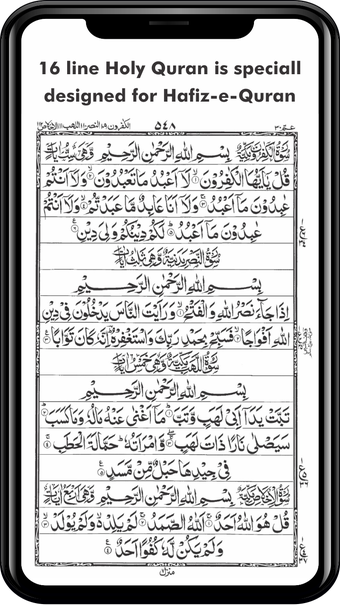 16 line Holy Quran is speciall
designed for Hafiz-e-Quran
٥٤٨
سُوْرَةُ الْكٰفِرُوْنَ مَكِّيَّةٌ بِسْمِ اللّٰهِ الرَّحْمٰنِ الرَّحِيْمِ وَهِيَ سِتُّ اٰيَاتٍ
قُلْ يٰۤاَيُّهَا الْكٰفِرُوْنَ ۙ لَاۤ اَعْبُدُ مَا تَعْبُدُوْنَ ۙ وَلَاۤ اَنْتُمْ
عٰبِدُوْنَ مَاۤ اَعْبُدُ ۚ وَلَاۤ اَنَا عَابِدٌ مَّا عَبَدْتُّمْ ۙ وَلَاۤ اَنْتُمْ
عٰبِدُوْنَ مَاۤ اَعْبُدُ ؕ لَكُمْ دِيْنُكُمْ وَلِيَ دِيْنِ
سُوْرَةُ النَّصْرِ مَدَنِيَّةٌ وَهِيَ ثَلٰثُ اٰيَاتٍ
بِسْمِ اللّٰهِ الرَّحْمٰنِ الرَّحِيْمِ
اِذَا جَآءَ نَصْرُ اللّٰهِ وَالْفَتْحُ ۙ وَرَاَيْتَ النَّاسَ يَدْخُلُوْنَ فِيْ دِيْنِ
اللّٰهِ اَفْوَاجًا ۙ فَسَبِّحْ بِحَمْدِ رَبِّكَ وَاسْتَغْفِرْهُ ؕ اِنَّهٗ كَانَ تَوَّابًا
سُوْرَةُ اللَّهَبِ مَكِّيَّةٌ وَهِيَ خَمْسُ اٰيَاتٍ
بِسْمِ اللّٰهِ الرَّحْمٰنِ الرَّحِيْمِ
تَبَّتْ يَدَاۤ اَبِيْ لَهَبٍ وَّتَبَّ ؕ مَاۤ اَغْنٰى عَنْهُ مَالُهٗ وَمَا كَسَبَ ؕ
سَيَصْلٰى نَارًا ذَاتَ لَهَبٍ ۖ وَّامْرَاَتُهٗ ؕ حَمَّالَةَ الْحَطَبِ ۚ
فِيْ جِيْدِهَا حَبْلٌ مِّنْ مَّسَدٍ
بِسْمِ اللّٰهِ الرَّحْمٰنِ الرَّحِيْمِ وَهِيَ اَرْبَعُ اٰيَاتٍ
قُلْ هُوَ اللّٰهُ اَحَدٌ ۚ اَللّٰهُ الصَّمَدُ ۚ لَمْ يَلِدْ ۙ وَلَمْ يُوْلَدْ ۙ
وَلَمْ يَكُنْ لَّهٗ كُفُوًا اَحَدٌ
منزل